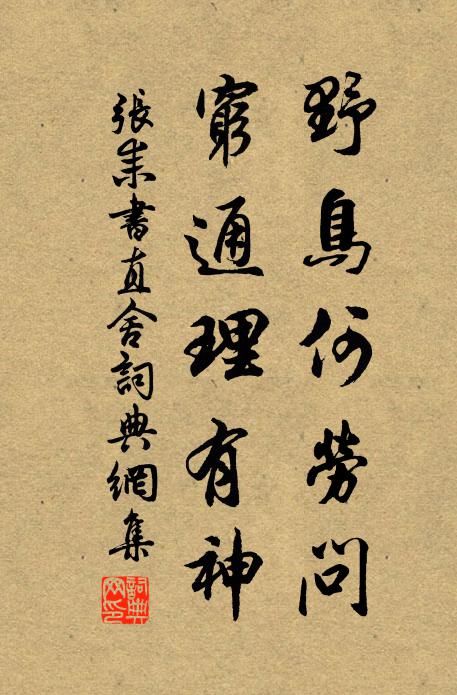 野鳥何勞問
窮通理有神
張耒書直舍詞典網集
詞典网印